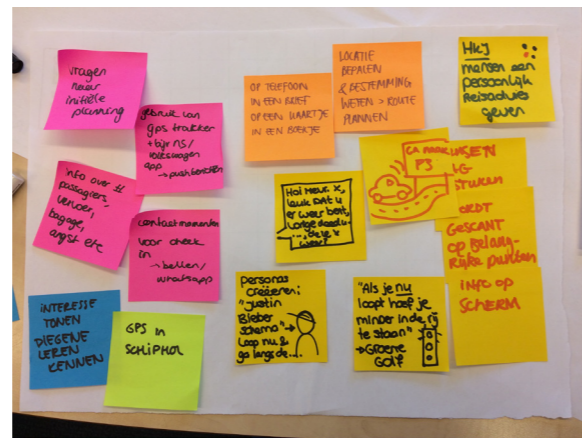 vragen
naar
initiële
planning
gebruik van
gps trakker
+ bijv NS/
volkswagen
app
→ pushberichten
info over #
passagiers,
vervoer,
bagage,
angst etc
contactmomenten
voor check
in
→ bellen/
whatsapp
INTERESSE
TONEN
DIEGENE
LEREN
KENNEN
GPS in
SCHIPHOL
OP TELEFOON
IN EEN BRIEF
OP EEN KAARTJE
IN EEN BOEKJE
LOCATIE
BEPALEN
& BESTEMMING
WETEN > ROUTE
PLANNEN
HKJ
mensen een
persoonlijk
Reisadvies
geven
Hoi mevr. X,
leuk dat u
er weer bent,
GA NAAR
P3
WORDT
GESCANT
OP Belang-
Rijke punten
INFO OP
SCHERM
Personas
creëeren:
"Justin
Bieber
schema"
Loop nu &
ga langs de....
"Als je nu
loopt hoef je
minder in de rij
te staan"
→ Groene
Golf